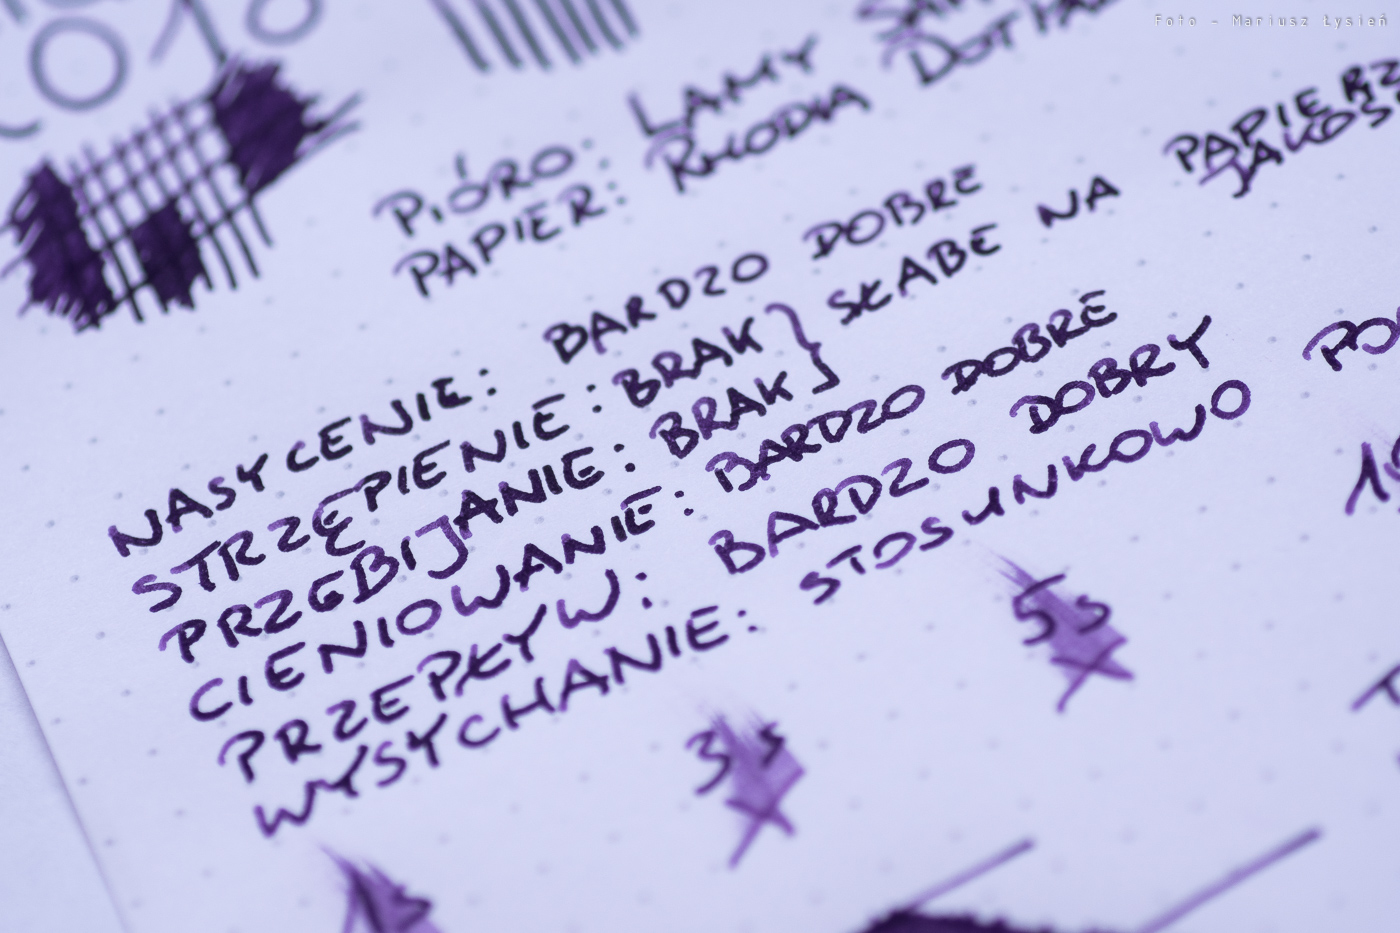 Foto - Mariusz Łysień
PIÓRO: LAMY
PAPIER: RHODIA
NASYCENIE: BARDZO DOBRE
STRZĘPIENIE: BRAK } SŁABE NA PAPIERZE
PRZEBIJANIE: BRAK
CIENIOWANIE: BARDZO DOBRE
PRZEPŁYW: BARDZO DOBRY
WYSYCHANIE: STOSUNKOWO
3s 5s